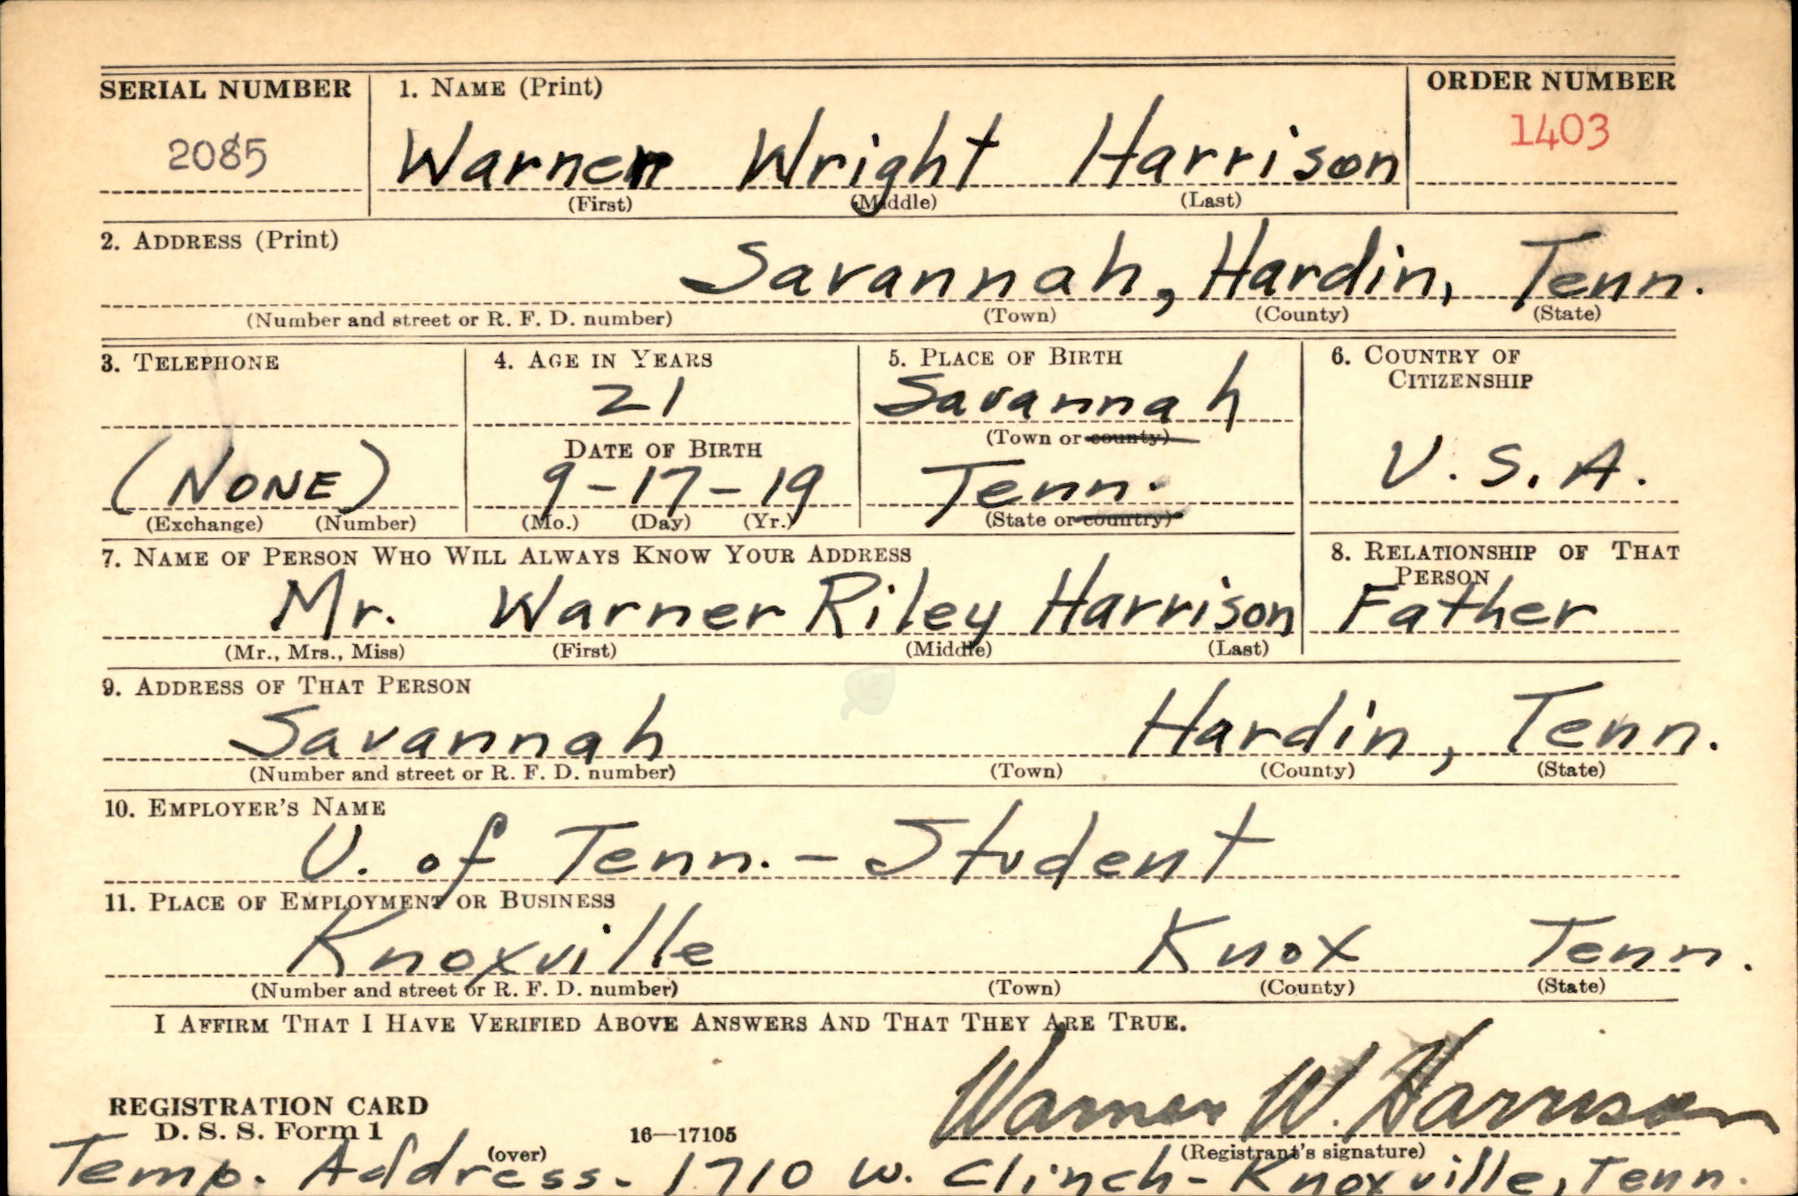 SERIAL NUMBER 1. NAME (Print) ORDER NUMBER
2085 Warner Wright Harrison 1403
(First) (Middle) (Last)
2. ADDRESS (Print)
Savannah, Hardin, Tenn.
(Number and street or R. F. D. number) (Town) (County) (State)
3. TELEPHONE 4. AGE IN YEARS 5. PLACE OF BIRTH 6. COUNTRY OF
CITIZENSHIP
21 Savannah
(Town or county)
DATE OF BIRTH
(NONE) 9-17-19 Tenn. U.S.A.
(Exchange) (Number) (Mo.) (Day) (Yr.) (State or country)
7. NAME OF PERSON WHO WILL ALWAYS KNOW YOUR ADDRESS 8. RELATIONSHIP OF THAT
PERSON
Mr. Warner Riley Harrison Father
(Mr., Mrs., Miss) (First) (Middle) (Last)
9. ADDRESS OF THAT PERSON
Savannah Hardin, Tenn.
(Number and street or R. F. D. number) (Town) (County) (State)
10. EMPLOYER'S NAME
U. of Tenn. - Student
11. PLACE OF EMPLOYMENT OR BUSINESS
Knoxville Knox Tenn.
(Number and street or R. F. D. number) (Town) (County) (State)
I AFFIRM THAT I HAVE VERIFIED ABOVE ANSWERS AND THAT THEY ARE TRUE.
Warner W. Harrison
REGISTRATION CARD
D. S. S. Form 1 16—17105
(over) (Registrant's signature)
Temp. Address - 1710 W. Clinch - Knoxville, Tenn.